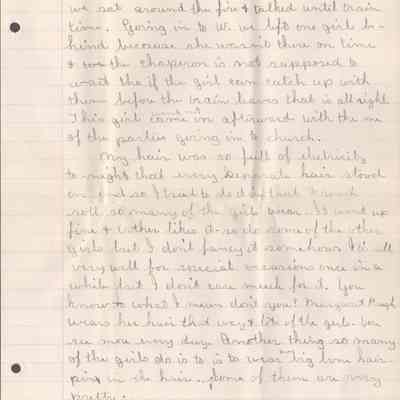 we sat around the fire & talked until train
time. Going in to W. we left one girl be-
hind because she wasn't there on time
& the chaperon is not supposed to
wait tho if the girl can catch up with
them before the train leaves that is all right.
This girl came on afterward with the
of the parties going in to church.
My hair was so full of electricity
to-night that every separate hair stood
on end so I tried to do
roll so many of the girls wear. It went up
fine & rather liked it - so do some of the other
girls but I don't fancy it somehow. It's all
very well for special occasions once in a
while but I don't care much for it. You
know to what I mean don't you? Margaret
wears her hair that way & lots of the girls
see now every day. Another thing so many
of the girls do is to is to wear big hair
pins in the hair. Some of them are very
pretty.